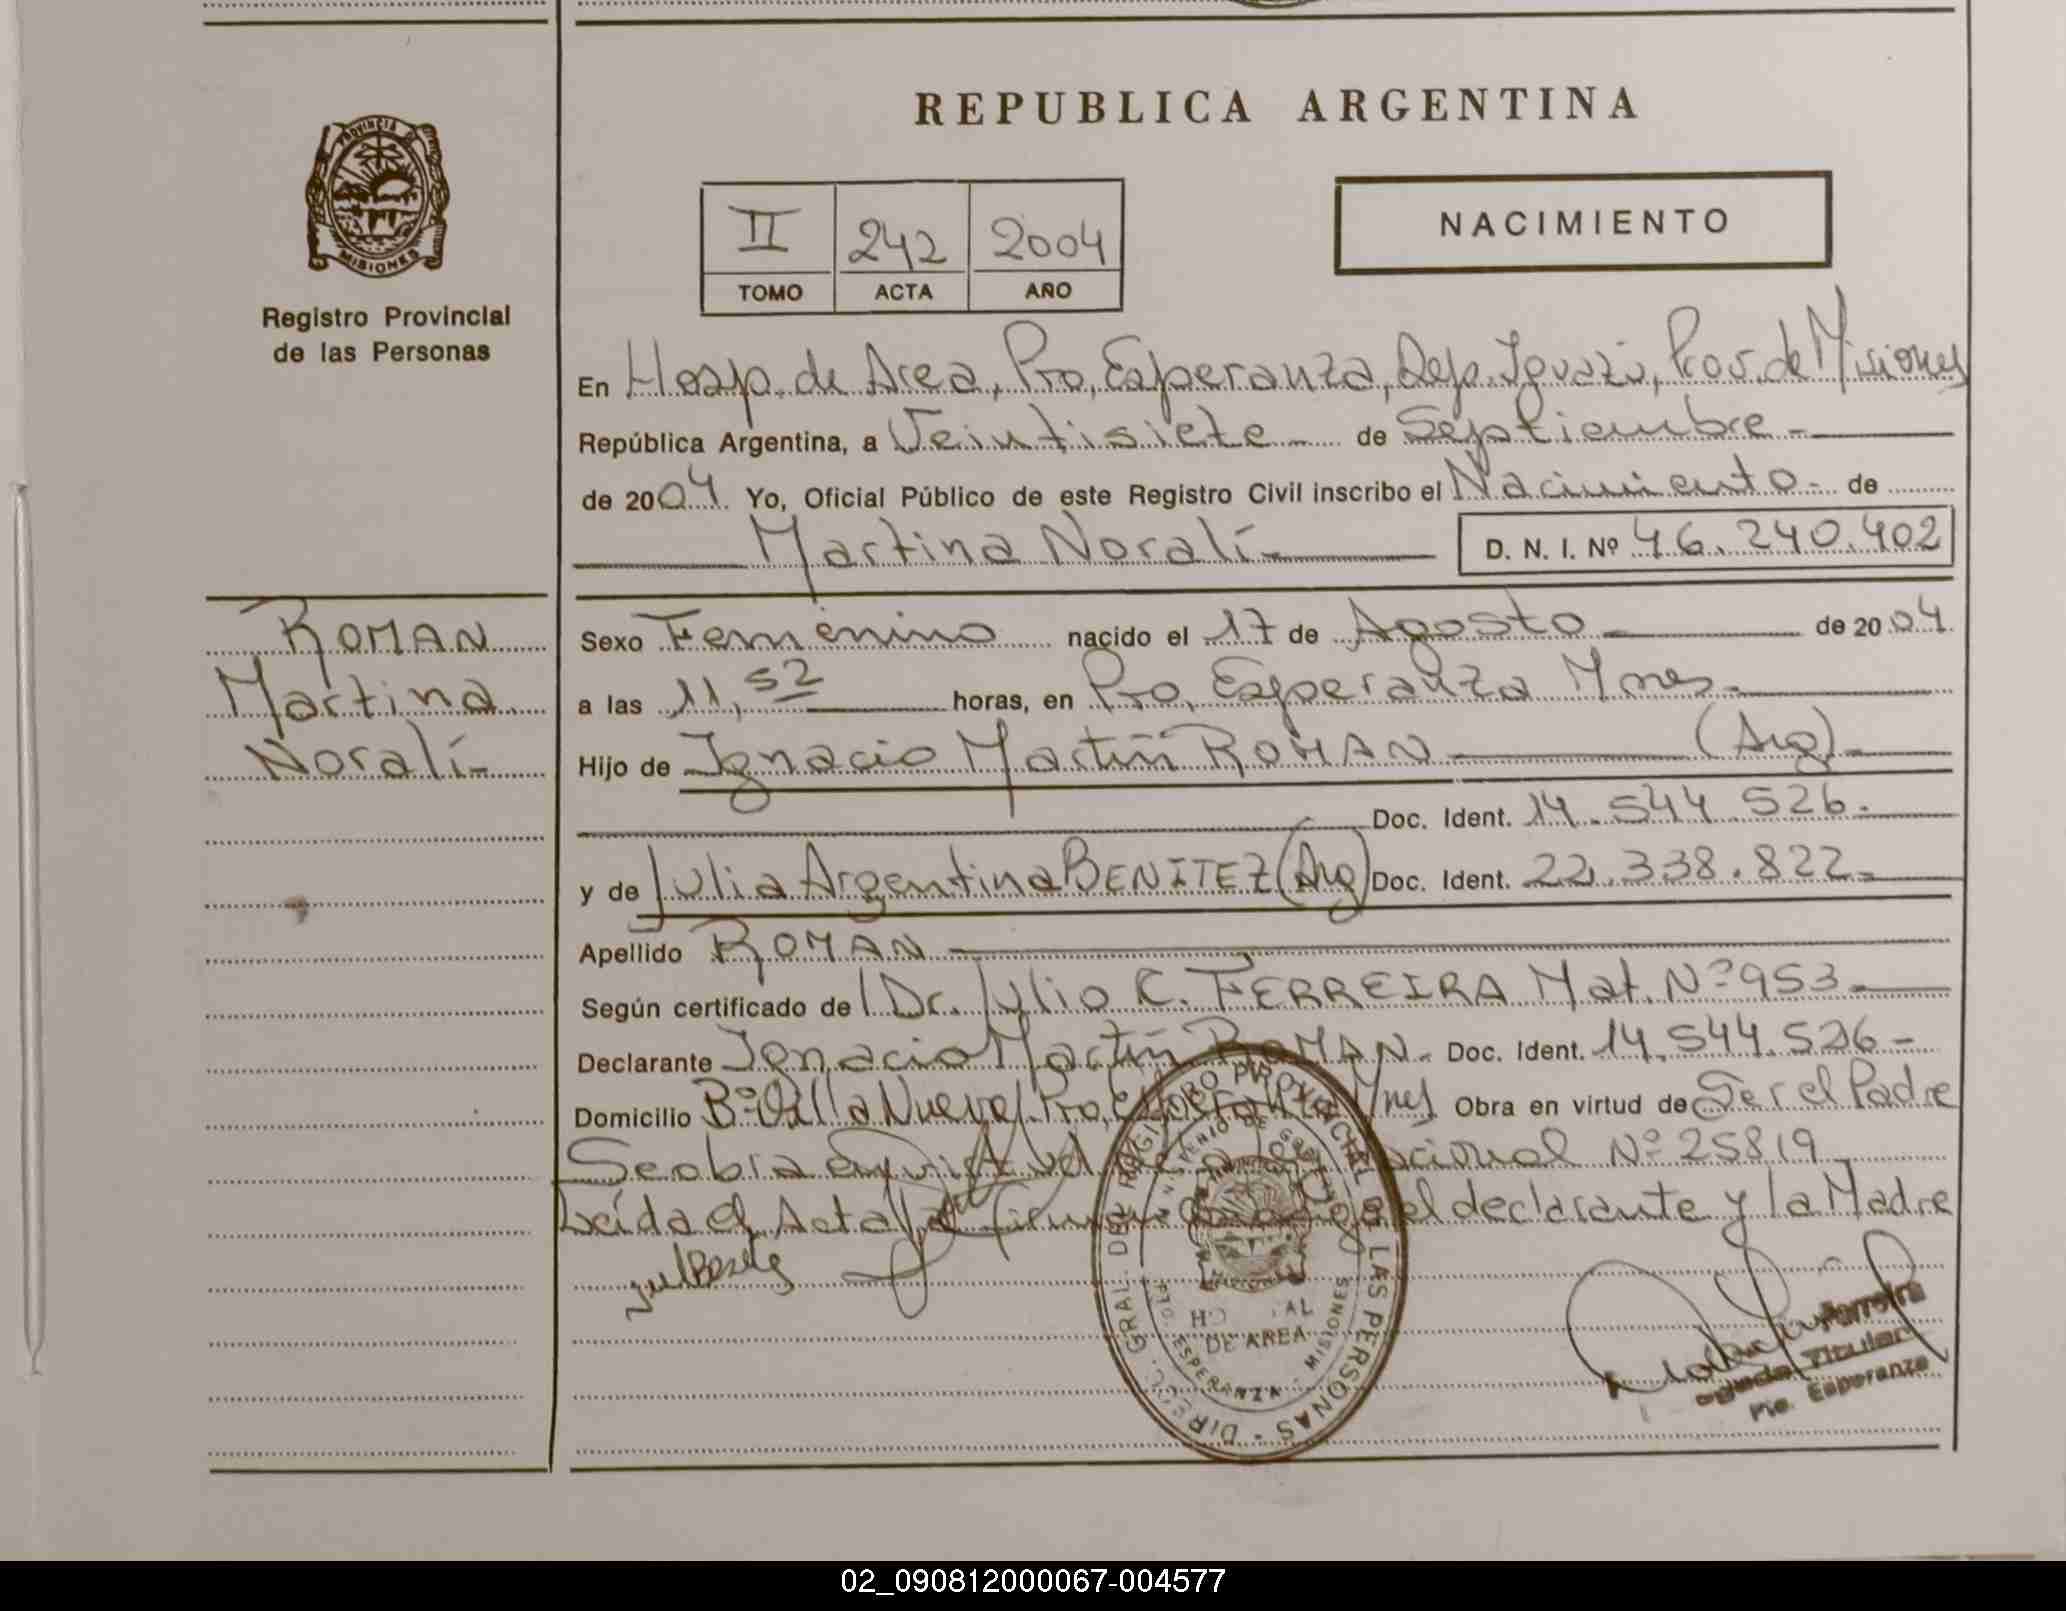 REPUBLICA ARGENTINA
PROVINCIA DE
MISIONES
Registro Provincial
de las Personas
II 242 2004
TOMO ACTA AÑO
NACIMIENTO
En Hosp. de Area, Pto, Esperanza, Dep. Iguazú, Prov. de Misiones
República Argentina, a Veintisiete de Septiembre
de 2004 Yo, Oficial Público de este Registro Civil inscribo el Nacimiento de
Martina Noralí
D. N. I. Nº 46.240.402
ROMAN
Martina
Noralí
Sexo Femenino nacido el 17 de Agosto de 2004
a las 11,52 horas, en Pto, Esperanza Mnes.
Hijo de Ignacio Martín ROMAN (Arg)
Doc. Ident. 14.544.526.
y de Julia Argentina BENITEZ (Arg) Doc. Ident. 22.338.822
Apellido ROMAN
Según certificado de Dr. Julio C. FERREIRA Mat. Nº 953
Declarante Ignacio Martín ROMAN. Doc. Ident. 14.544.526
Domicilio Bº Villa Nueva Pto, Esperanza Mnes Obra en virtud de Ser el Padre
Se obra en virtud de Nacional Nº 25819
Leída el Acta, la firma el declarante y la Madre
DIRECC. GRAL. DEL REGISTRO PROVINCIAL DE LAS PERSONAS
MINISTERIO DE GOBIERNO
HOSPITAL
DE AREA
PTO. ESPERANZA - MISIONES
Ferreira
Titular
Pto. Esperanza
02_090812000067-004577